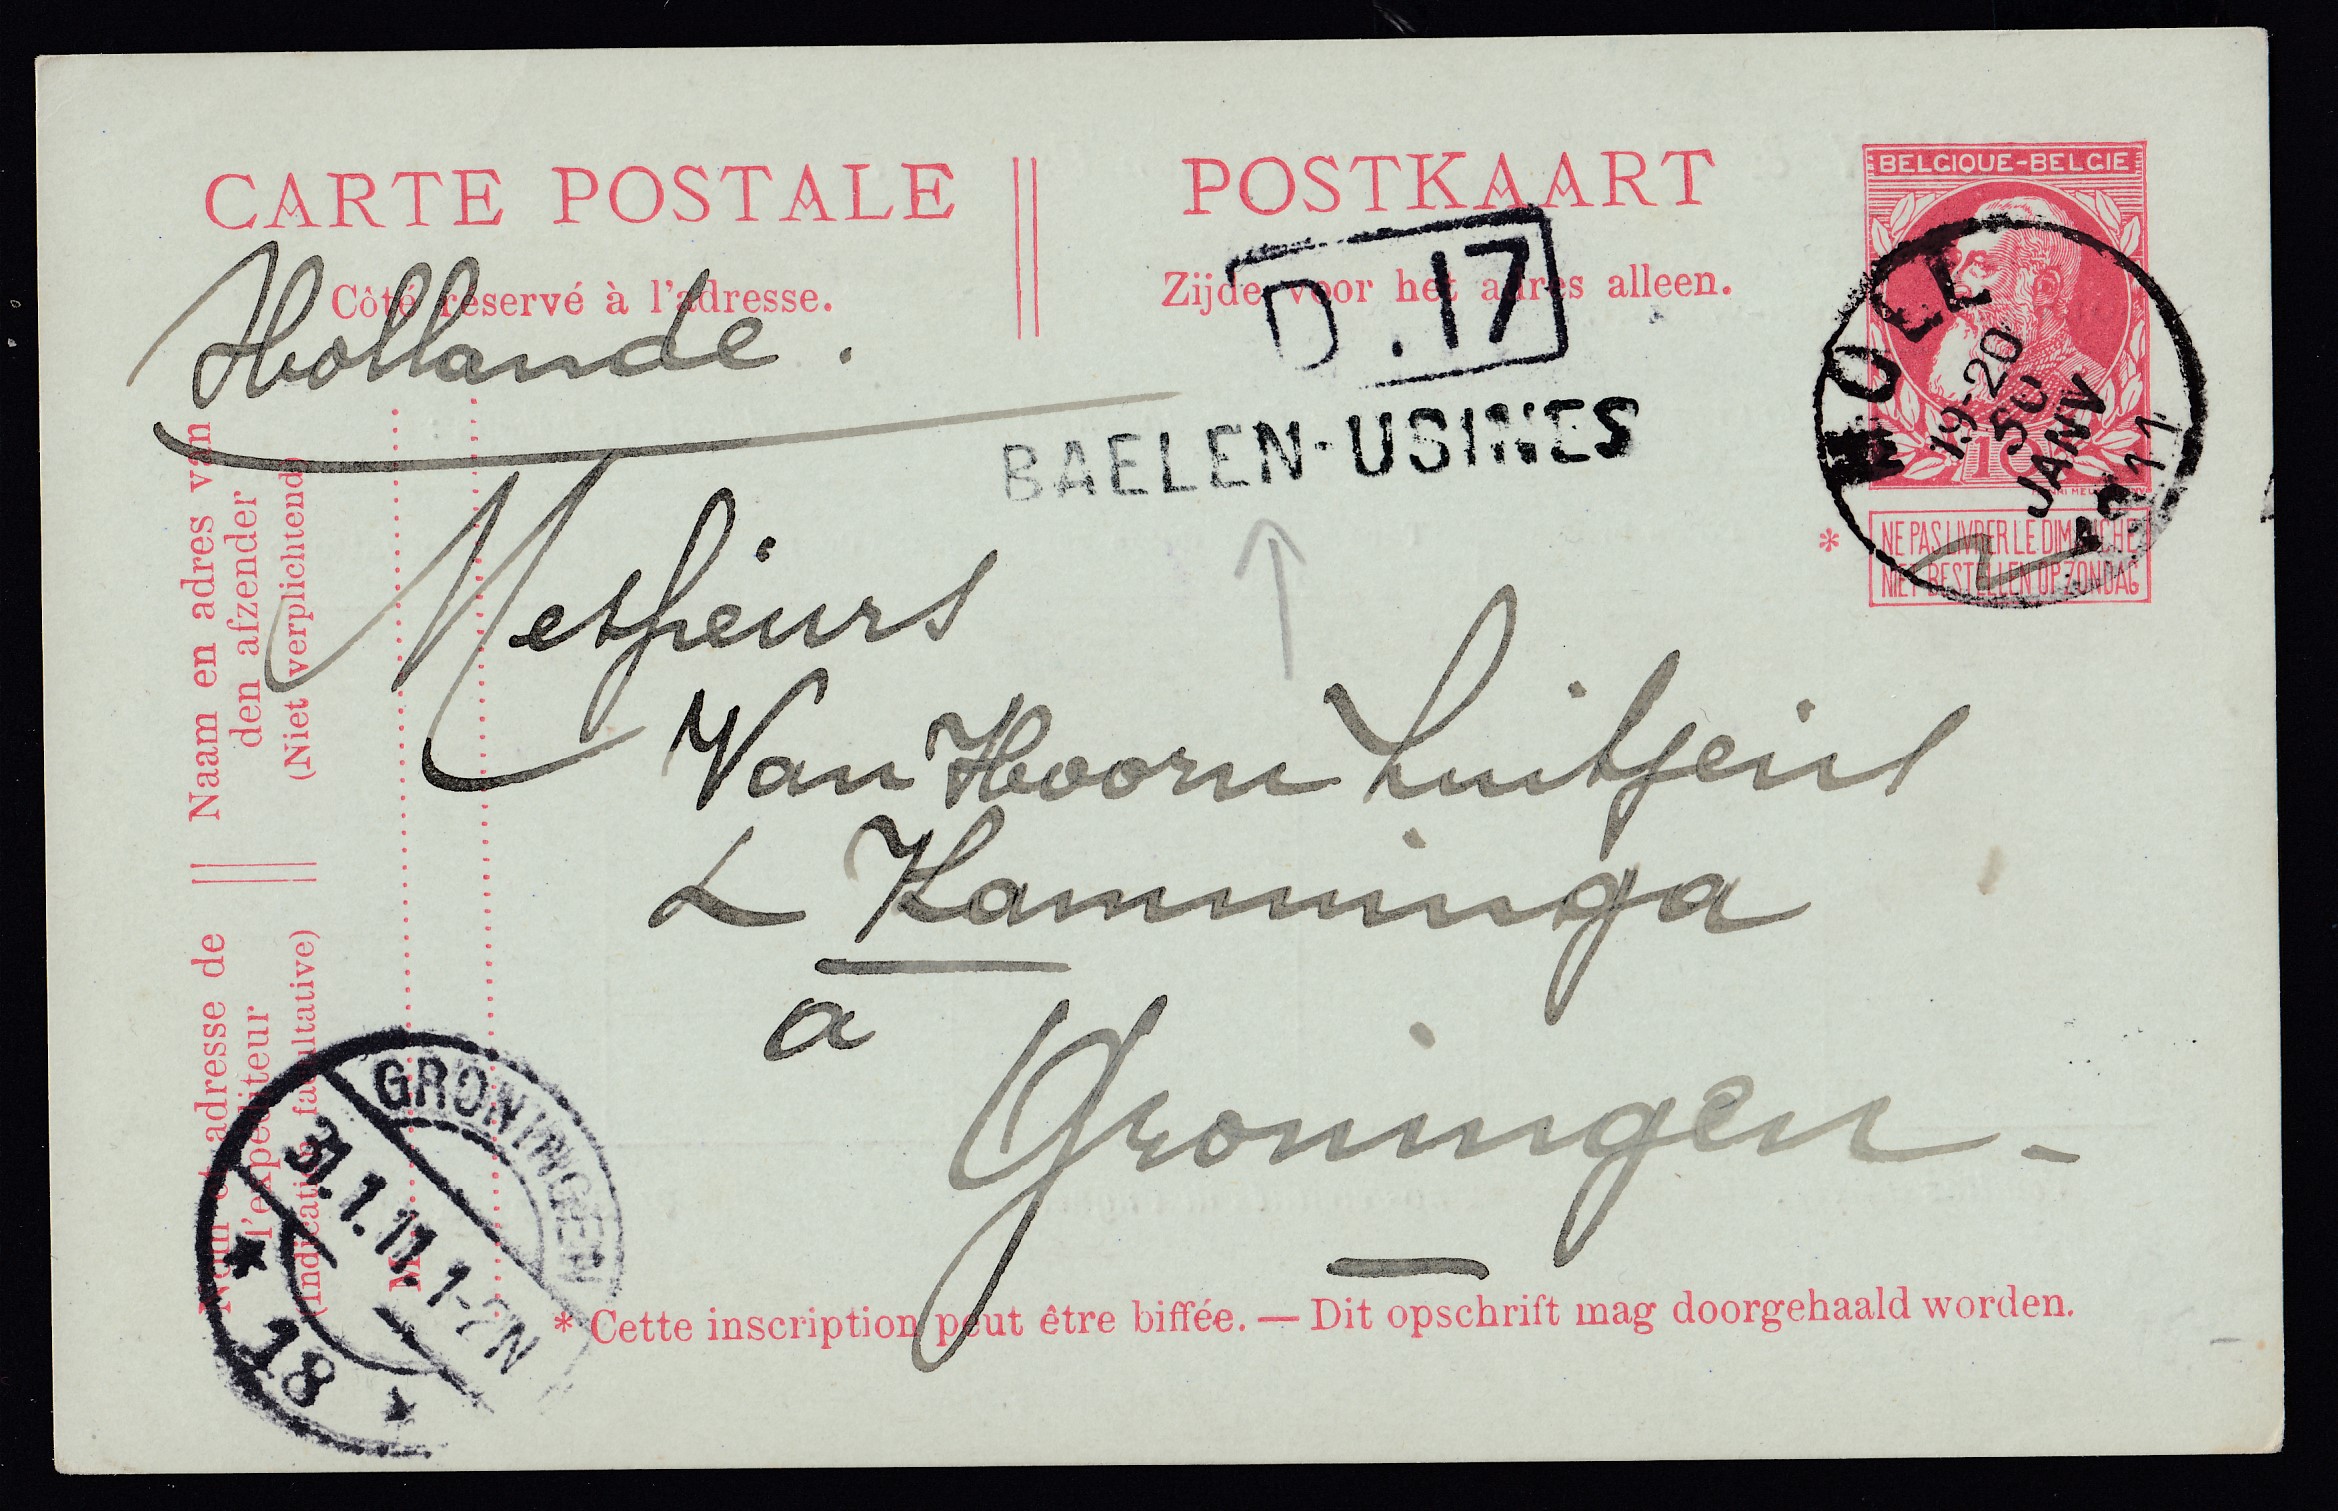 CARTE POSTALE
Côté réservé à l'adresse.
POSTKAART
Zijde voor het adres alleen.
BELGIQUE-BELGIE
10
* NE PAS LIVRER LE DIMANCHE
NIET BESTELLEN OP ZONDAG
MOLL
19-20
30
JANV
11
D.17
BAELEN-USINES
Hollande.
Messieurs
Van Hoorn Luitjens
& Kamminga
à
Groningen -
Naam en adres van
den afzender
(Niet verplichtend)
Nom et adresse de
l'expéditeur
(Indication facultative)
M
GRONINGEN
31.1.11.1-2N
18
* Cette inscription peut être biffée. — Dit opschrift mag doorgehaald worden.